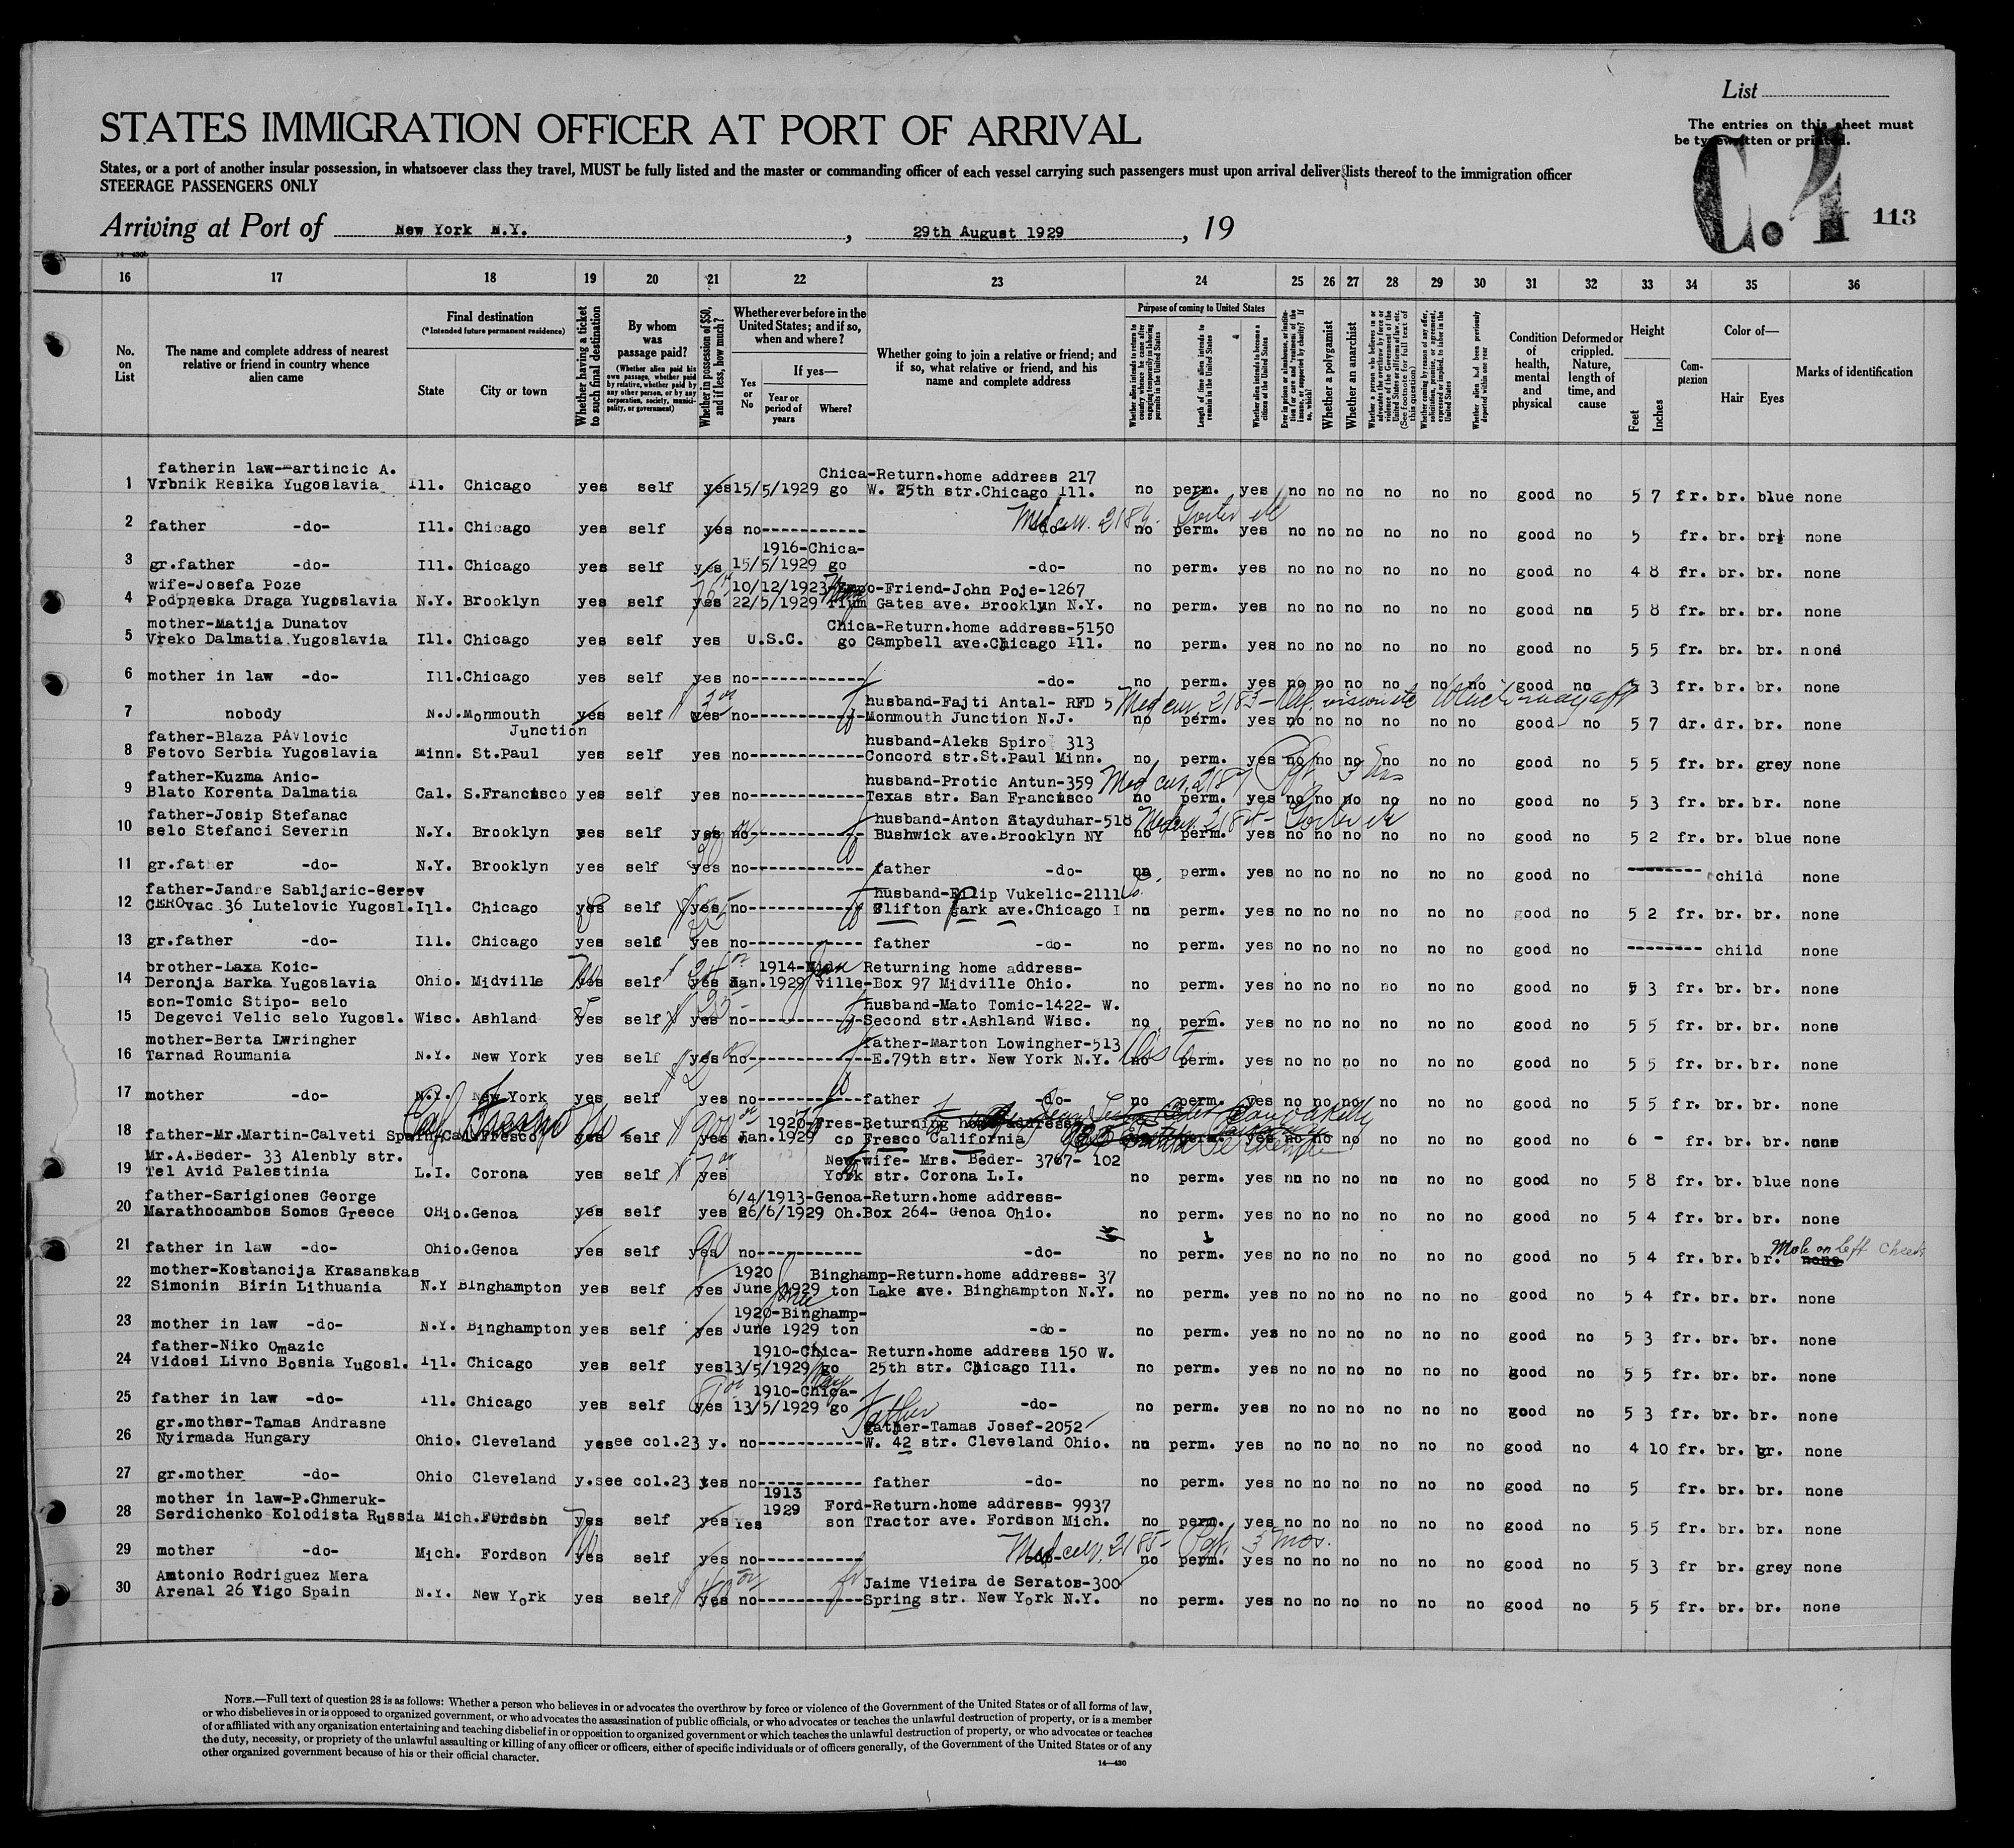 List
The entries on this sheet must
be typewritten or printed.
C.4
113
STATES IMMIGRATION OFFICER AT PORT OF ARRIVAL
States, or a port of another insular possession, in whatsoever class they travel, MUST be fully listed and the master or commanding officer of each vessel carrying such passengers must upon arrival deliver lists thereof to the immigration officer
STEERAGE PASSENGERS ONLY
Arriving at Port of New York N.Y. , 29th August 1929 , 19
16 17 18 19 20 21 22 23 24 25 26 27 28 29 30 31 32 33 34 35 36
No. on List
The name and complete address of nearest relative or friend in country whence alien came
Final destination
(*Intended future permanent residence)
State
City or town
Whether having a ticket to such final destination
By whom was passage paid?
(Whether alien paid his own passage, whether paid by relative, whether paid by any other person, or by any corporation, society, municipality, or government)
Whether in possession of $50, and if less, how much?
Whether ever before in the United States; and if so, when and where?
Yes or No
If yes—
Year or period of years
Where?
Whether going to join a relative or friend; and if so, what relative or friend, and his name and complete address
Purpose of coming to United States
Length of time alien intends to remain in the United States
Whether alien intends to become a citizen of the United States
Whether a polygamist
Whether an anarchist
Condition of health, mental and physical
Deformed or crippled. Nature, length of time, and cause
Height
Feet
Inches
Complexion
Color of—
Hair
Eyes
Marks of identification
fatherin law-artincic A. Chica-Return.home address 217
1 Vrbnik Resika Yugoslavia Ill. Chicago yes self yes 15/5/1929 go W. 25th str.Chicago Ill. no perm. yes no no no no no no good no 5 7 fr. br. blue none
2 father -do- Ill. Chicago yes self yes no -do- no perm. yes no no no no no no good no 5 fr. br. br. none
1916-Chica-
3 gr.father -do- Ill. Chicago yes self yes 15/5/1929 go -do- no perm. yes no no no no no no good no 4 8 fr. br. br. none
wife-Josefa Poze 10/12/1923 Friend-John Poje-1267
4 Podpreska Draga Yugoslavia N.Y. Brooklyn yes self yes 22/5/1929 Gates ave. Brooklyn N.Y. no perm. yes no no no no no no good no 5 8 fr. br. br. none
mother-Matija Dunatov Chica-Return.home address-5150
5 Vreko Dalmatia Yugoslavia Ill. Chicago yes self yes U.S.C. go Campbell ave.Chicago Ill. no perm. yes no no no no no no good no 5 5 fr. br. br. none
6 mother in law -do- Ill.Chicago yes self yes no -do- no perm. yes no no no no no no good no 3 fr. br. br. none
husband-Fajti Antal- RFD 5
7 nobody N.J. Monmouth Junction yes self yes no Monmouth Junction N.J. no perm. yes no no no no no no good no 5 7 dr. dr. br. none
father-Blaza Pavlovic husband-Aleks Spiro 313
8 Fetovo Serbia Yugoslavia Minn. St.Paul yes self yes no Concord str.St.Paul Minn. no perm. yes no no no no no no good no 5 5 fr. br. grey none
father-Kuzma Anic- husband-Protic Antun-359
9 Blato Korenta Dalmatia Cal. S.Francisco yes self yes no Texas str. San Francisco no perm. yes no no no no no no good no 5 3 fr. br. br. none
father-Josip Stefanac husband-Anton Stayduhar-518
10 selo Stefanci Severin N.Y. Brooklyn yes self yes no Bushwick ave.Brooklyn NY no perm. yes no no no no no no good no 5 2 fr. br. blue none
11 gr.father -do- N.Y. Brooklyn yes self yes no father -do- no perm. yes no no no no no no good no child none
father-Jandre Sabljaric-Gerov husband-Filip Vukelic-2111
12 CEROvac 36 Lutelovic Yugosl. Ill. Chicago yes self yes no Clifton park ave.Chicago I no perm. yes no no no no no no good no 5 2 fr. br. br. none
13 gr.father -do- Ill. Chicago yes self yes no father -do- no perm. yes no no no no no no good no child none
brother-Laxa Koic- 1914-Mid Returning home address-
14 Deronja Barka Yugoslavia Ohio. Midville yes self yes Jan.1929 ville-Box 97 Midville Ohio. no perm. yes no no no no no no good no 5 3 fr. br. br. none
son-Tomic Stipo- selo husband-Mato Tomic-1422- W.
15 Degevci Velic selo Yugosl. Wisc. Ashland yes self yes no Second str.Ashland Wisc. no perm. yes no no no no no no good no 5 5 fr. br. br. none
mother-Berta Lwringher father-Marton Lowingher-513
16 Tarnad Roumania N.Y. New York yes self yes no E.79th str. New York N.Y. no perm. yes no no no no no no good no 5 5 fr. br. br. none
17 mother -do- N.Y. New York yes self yes no father -do- no perm. yes no no no no no no good no 5 5 fr. br. br. none
1920-Fres-Returning home address
18 father-Mr.Martin-Calveti Spain Cal. Fresco yes self yes Jan.1929 co Fresco California perm. yes no no no no no no good no 6 - fr. br. br. none
Mr.A.Beder- 33 Alenbly str. New wife- Mrs. Beder- 3767- 102
19 Tel Avid Palestinia L.I. Corona yes self yes York str. Corona L.I. no perm. yes no no no no no no good no 5 8 fr. br. blue none
father-Sarigiones George 6/4/1913-Genoa-Return.home address-
20 Marathocambos Somos Greece OHio.Genoa yes self yes 26/6/1929 Oh.Box 264- Genoa Ohio. no perm. yes no no no no no no good no 5 4 fr. br. br. none
21 father in law -do- Ohio.Genoa yes self yes no -do- no perm. yes no no no no no no good no 5 4 fr. br. br. none Mole on left Cheek
mother-Kostancija Krasanskas 1920 Binghamp-Return.home address- 37
22 Simonin Birin Lithuania N.Y Binghampton yes self yes June 1929 ton Lake ave. Binghampton N.Y. no perm. yes no no no no no no good no 5 4 fr. br. br. none
1920-Binghamp-
23 mother in law -do- N.Y. Binghampton yes self yes June 1929 ton -do- no perm. yes no no no no no no good no 5 3 fr. br. br. none
father-Niko Omazic 1910-Chica- Return.home address 150 W.
24 Vidosi Livno Bosnia Yugosl. Ill. Chicago yes self yes 13/5/1929 go 25th str. Chicago Ill. no perm. yes no no no no no no good no 5 5 fr. br. br. none
1910-Chica-
25 father in law -do- Ill. Chicago yes self yes 13/5/1929 go -do- no perm. yes no no no no no no good no 5 3 fr. br. br. none
gr.mother-Tamas Andrasne father gather-Tamas Josef-2052
26 Nyirmada Hungary Ohio. Cleveland yes see col.23 y. no W. 42 str. Cleveland Ohio. no perm. yes no no no no no no good no 4 10 fr. br. gr. none
27 gr.mother -do- Ohio Cleveland y.see col.23 yes no father -do- no perm. yes no no no no no no good no 5 fr. br. br. none
mother in law-P.Chmeruk- 1913 1929 Ford-Return.home address- 9937
28 Serdichenko Kolodista Russia Mich.Fordson yes self yes Yes son Tractor ave. Fordson Mich. no perm. yes no no no no no no good no 5 5 fr. br. br. none
29 mother -do- Mich. Fordson yes self yes no -do- no perm. yes no no no no no no good no 5 3 fr br. grey none
Antonio Rodriguez Mera Jaime Vieira de Seratos-300
30 Arenal 26 Vigo Spain N.Y. New York yes self yes no Spring str. New York N.Y. no perm. yes no no no no no no good no 5 5 fr. br. br. none
NOTE.—Full text of question 28 is as follows: Whether a person who believes in or advocates the overthrow by force or violence of the Government of the United States or of all forms of law,
or who disbelieves in or is opposed to organized government, or who advocates the assassination of public officials, or who advocates or teaches the unlawful destruction of property, or is a member
of or affiliated with any organization entertaining and teaching disbelief in or opposition to organized government or which teaches the unlawful destruction of property, or who advocates or teaches
the duty, necessity, or propriety of the unlawful assaulting or killing of any officer or officers, either of specific individuals or of officers generally, of the Government of the United States or of any
other organized government because of his or their official character.
14—430